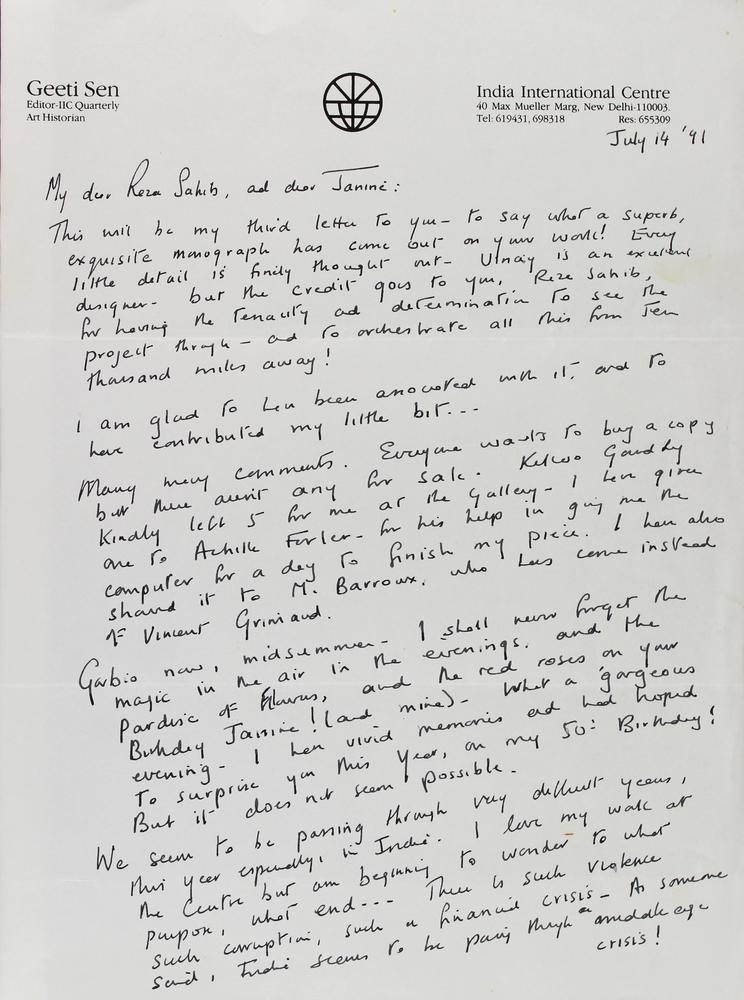 Geeti Sen
Editor-IIC Quarterly
Art Historian
India International Centre
40 Max Mueller Marg, New Delhi-110003.
Tel: 619431, 698318 Res: 655309
July 14 '91
My dear Reza Sahib, and dear Janine:
This will be my third letter to you — to say what a superb,
exquisite monograph has come out on your work! Every
little detail is finely thought out — is an excellent
designer — but the credit goes to you, Reza Sahib,
for having the tenacity and determination to see the
project through — and to orchestrate all this from ten
thousand miles away!
I am glad to have been associated with it, and to
have contributed my little bit...
Many many comments. Everyone wants to buy a copy
but there aren't any for sale. Kekoo Gandhy
kindly left 5 for me at the Gallery — I have given
one to Achille — for his help in giving me the
computer for a day to finish my piece. I have also
shared it to M. Barroux, who has come instead
of Vincent Grimaud.
Gorbio now, midsummer — I shall never forget the
magic in the air in the evenings, and the
Paradise of Flowers, and the red roses on your
Birthday Janine! (and mine) — What a gorgeous
evening — I have vivid memories and had hoped
to surprise you this year, on my 50th Birthday!
But it does not seem possible.
We seem to be passing through very difficult years,
this year especially, in India. I love my work at
the Centre but am beginning to wonder to what
purpose, what end... There is such violence
such corruption, such a financial crisis — As someone
said, India seems to be passing through a middle age
crisis!